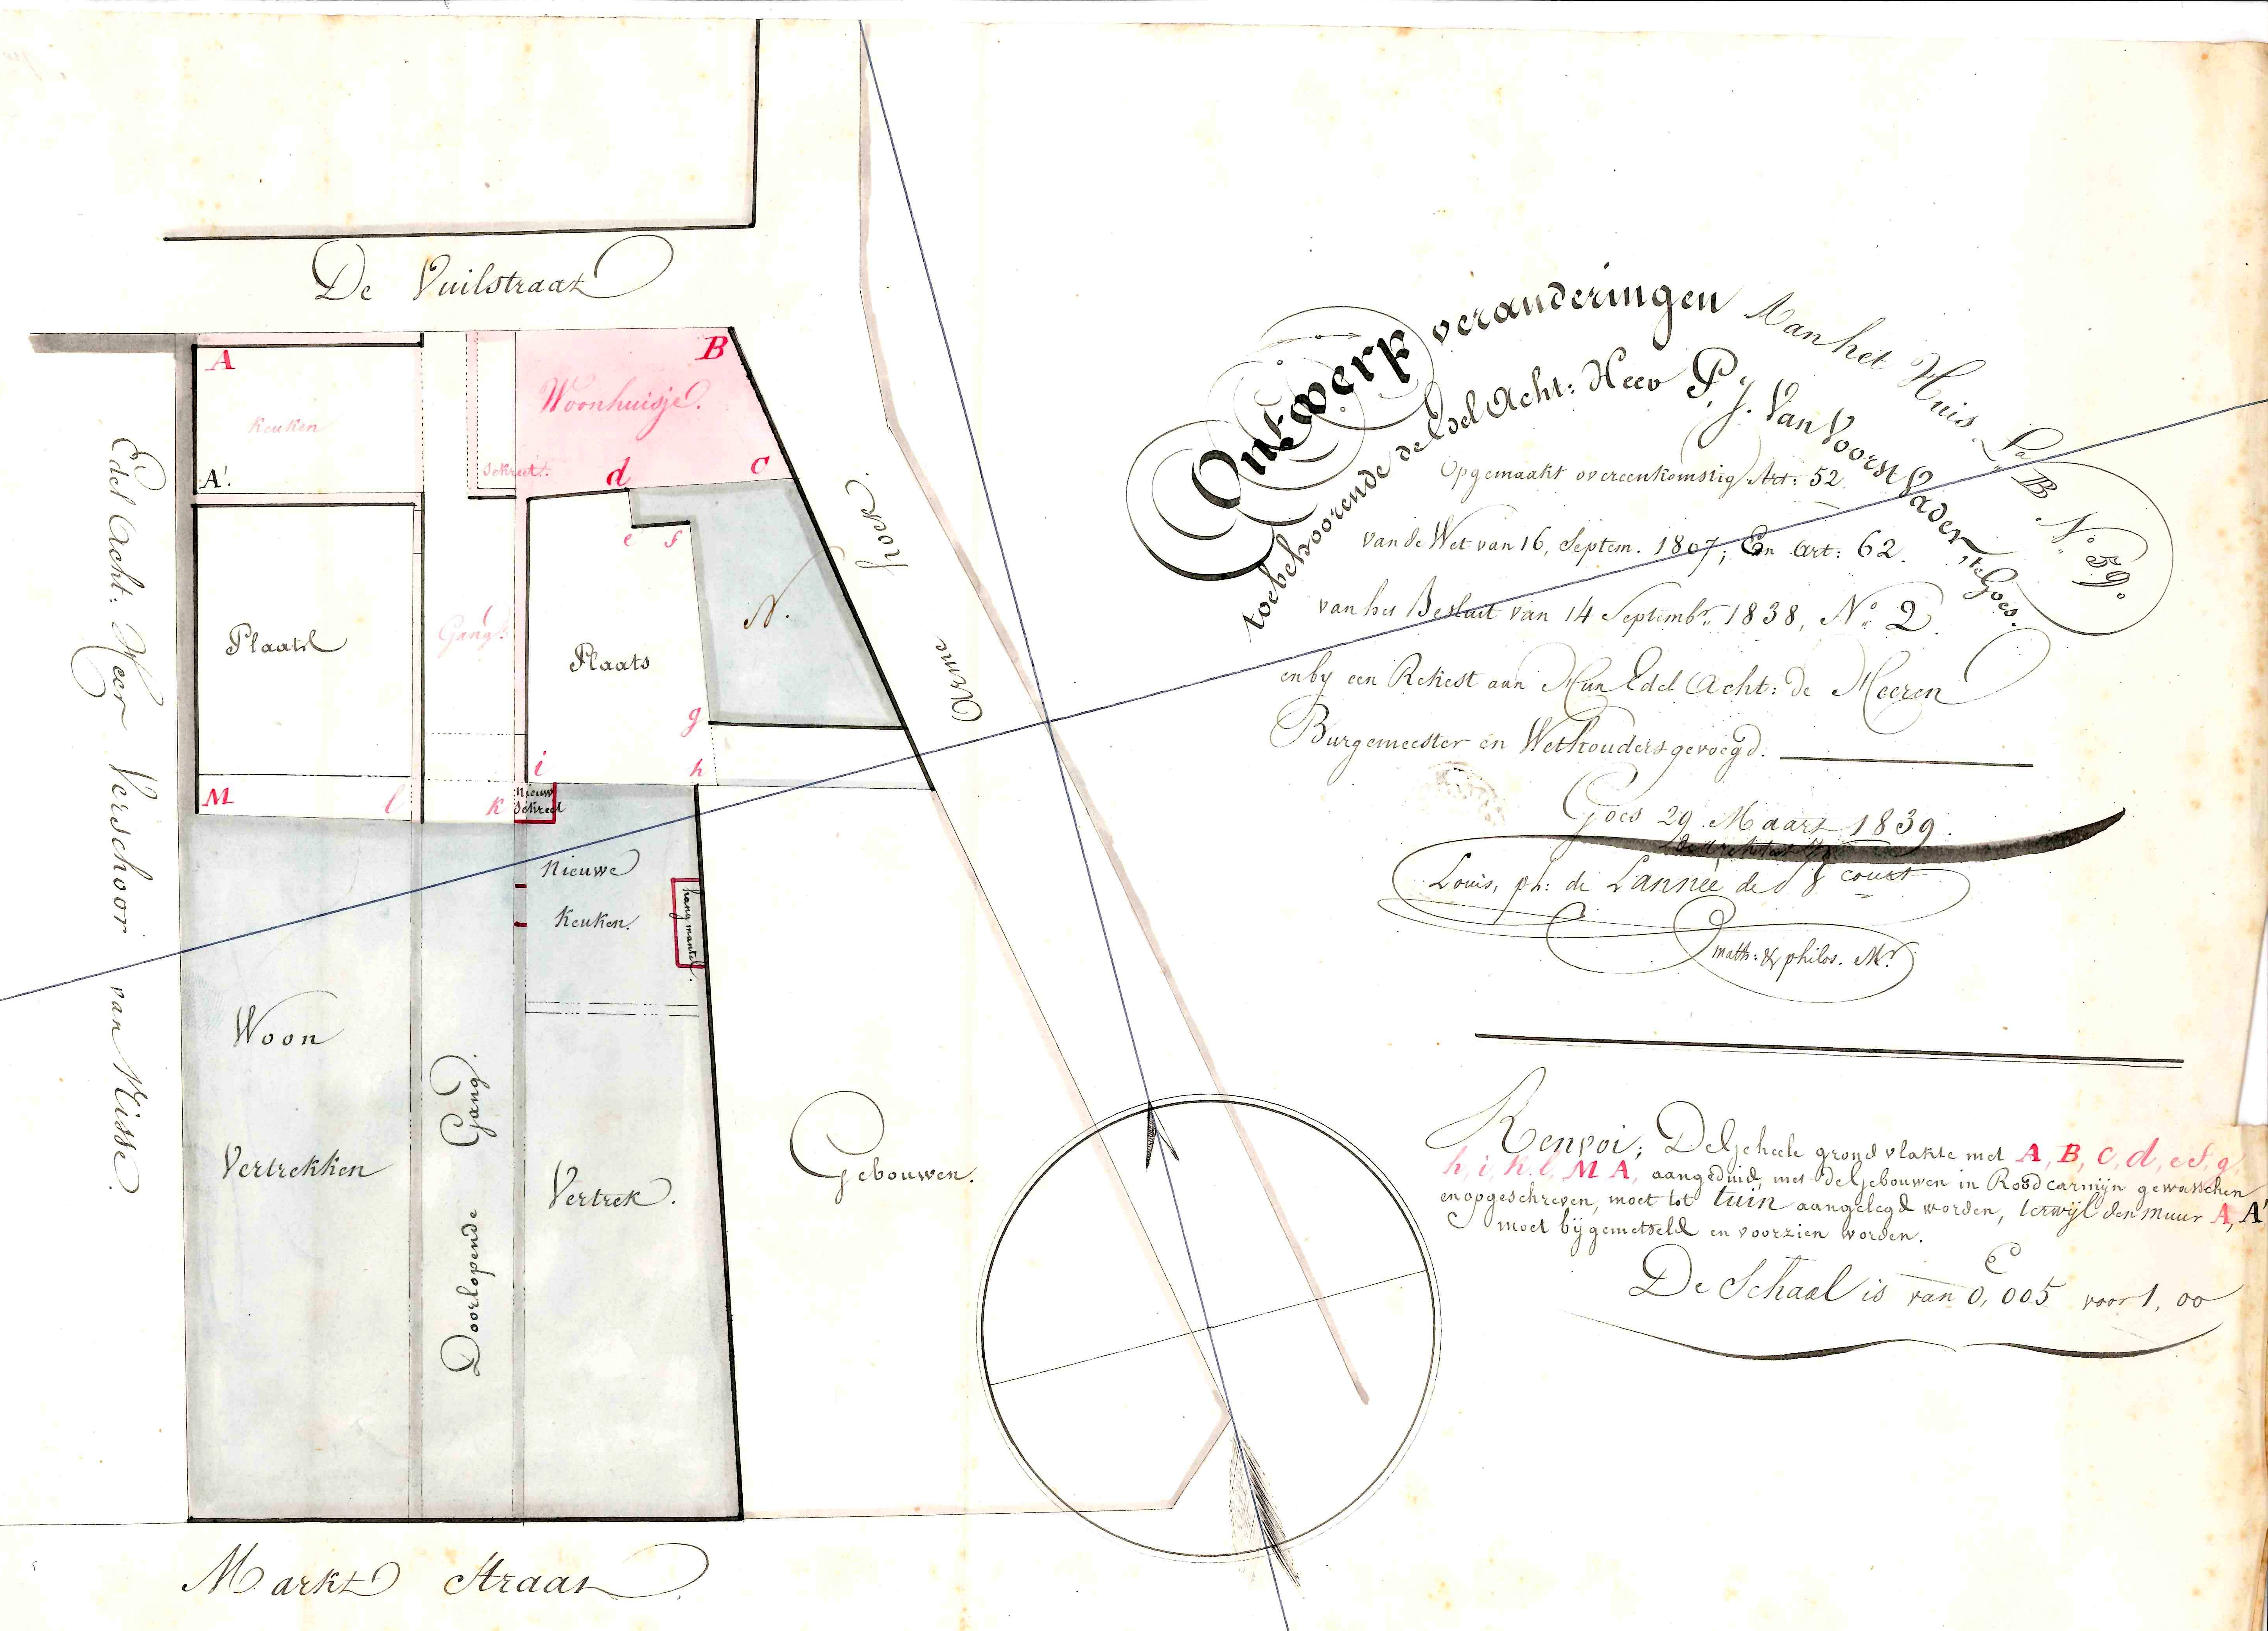 De Vuilstraat
A
B
Keuken
Woonhuisje.
A'.
Sekreet.
d
C
e f
N.
Plaats
Gang
Plaats
g
i
h
M
l
k
Nieuw
Sekreet
Nieuwe
Keuken.
hang mantel.
Woon
Vertrekken
Doorlopende Gang.
Vertrek.
Gebouwen.
Edel Acht: Heer Verschoor van Nisse.
Arme hoek.
Markt Straat
Ontwerp veranderingen Aan het Huis. La B. No. 59.
toebehoorende de Edel Acht: Heer P. J. Van Voorst Vader, te Goes.
Opgemaakt overeenkomstig Art: 52.
van de Wet van 16, Septem. 1807; En Art: 62.
van het Besluit van 14 Septembr. 1838, No. 2.
en by een Rekest aan Hun Edel Acht: de Heeren
Burgemeester en Wethouders gevoegd.
Goes 29 Maart 1839.
Louis, ph: de Lannée de court
math: & philos. Mr.
Renvoi; De Geheele grond vlakte met A, B, C, d, e, f, g,
h, i, k, l, M A, aangeduid, met de Gebouwen in Rood carmijn gewasschen
en opgeschreven, moet tot tuin aangelegd worden, terwijl den muur A, A'
moet bijgemetseld en voorzien worden.
De Schaal is van 0,005 voor 1,00